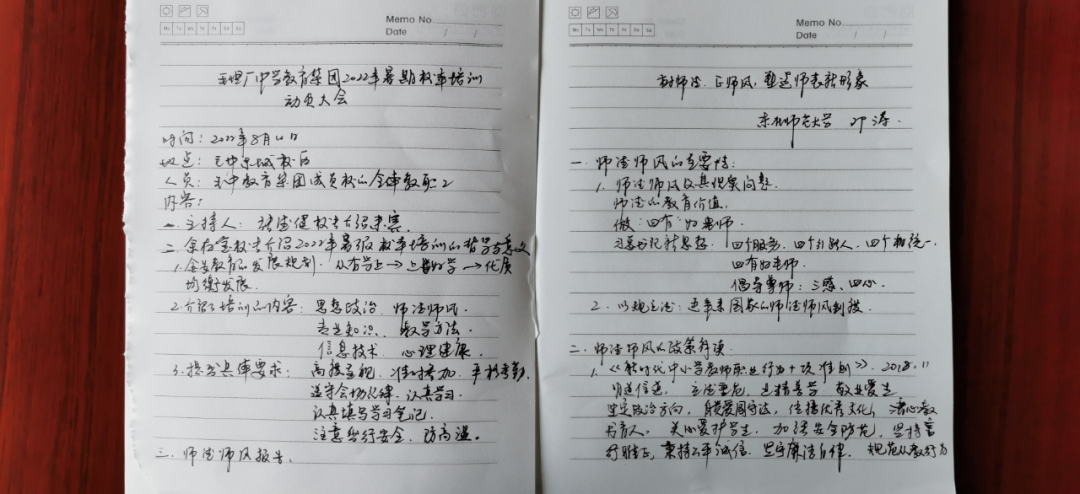 Memo No.
Date / /
Mo Tu We Th Fr Sa Su
中学教育集团2022年暑期校本培训
动员大会
时间：2022年8月10日
地点：王中东城校区
人员：王中教育集团成员校的全体教职工
内容：
一、主持人：校长介绍来宾
二、校长介绍2022年暑假校本培训的背景与意义
1.全县教育的发展规划：从有学上→上好学→优质
均衡发展.
2.介绍了培训的内容：思想政治、师德师风、
专业知识、教学方法、
信息技术、心理健康.
3.提出具体要求：高度重视、准时参加、严格考勤
遵守会场纪律、认真学习.
认真填写学习笔记.
注意出行安全、防高温.
三、师德师风报告.
Memo No.
Date / /
Mo Tu We Th Fr Sa Su
树师德、正师风，塑造师表新形象
东北师范大学
一、师德师风的重要性：
1、师德师风及其现实问题.
师德的教育价值.
做“四有”好老师.
习总书记新思想：四个服务、四个引路人、四个相统一、
四有好老师.
倡导尊师：
2、以规立法：近年来国家的师德师风制度.
二、师德师风的政策行项.
1、《新时代中小学教师职业行为十项准则》2018.11
坚定政治方向，自觉爱国守法，传播优秀文化，潜心教
书育人。关心爱护学生，加强安全防范，坚持言
行雅正，秉持公平诚信，坚守廉洁自律，规范从教行为